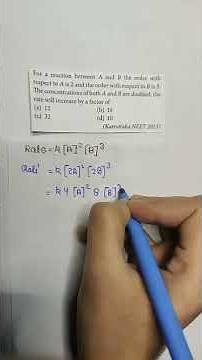 For a reaction between A and B the order with
respect to A is 2 and the order with respect to B is 3.
The concentrations of both A and B are doubled, the
rate will increase by a factor of
(a) 12 (b) 16
(c) 32 (d) 10
(Karnataka NEET 2013)
Rate = k [A]² [B]³
Rate' = k [2A]² [2B]³
= k 4 [A]² 8 [B]³